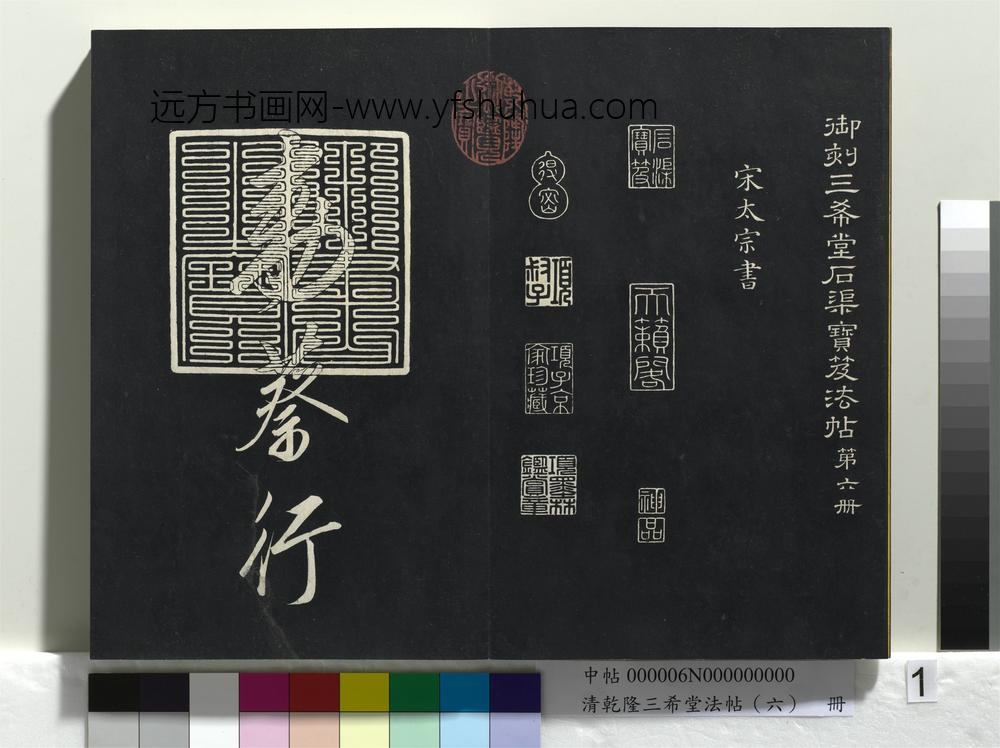 远方书画网-www.yfshuhua.com
御刻三希堂石渠寶笈法帖第六冊
宋太宗書
石渠
寶笈
天籟閣
神品
項子京
家珍藏
項墨林
鑑賞章
蔡行
中帖 000006N000000000
清乾隆三希堂法帖（六） 冊
1